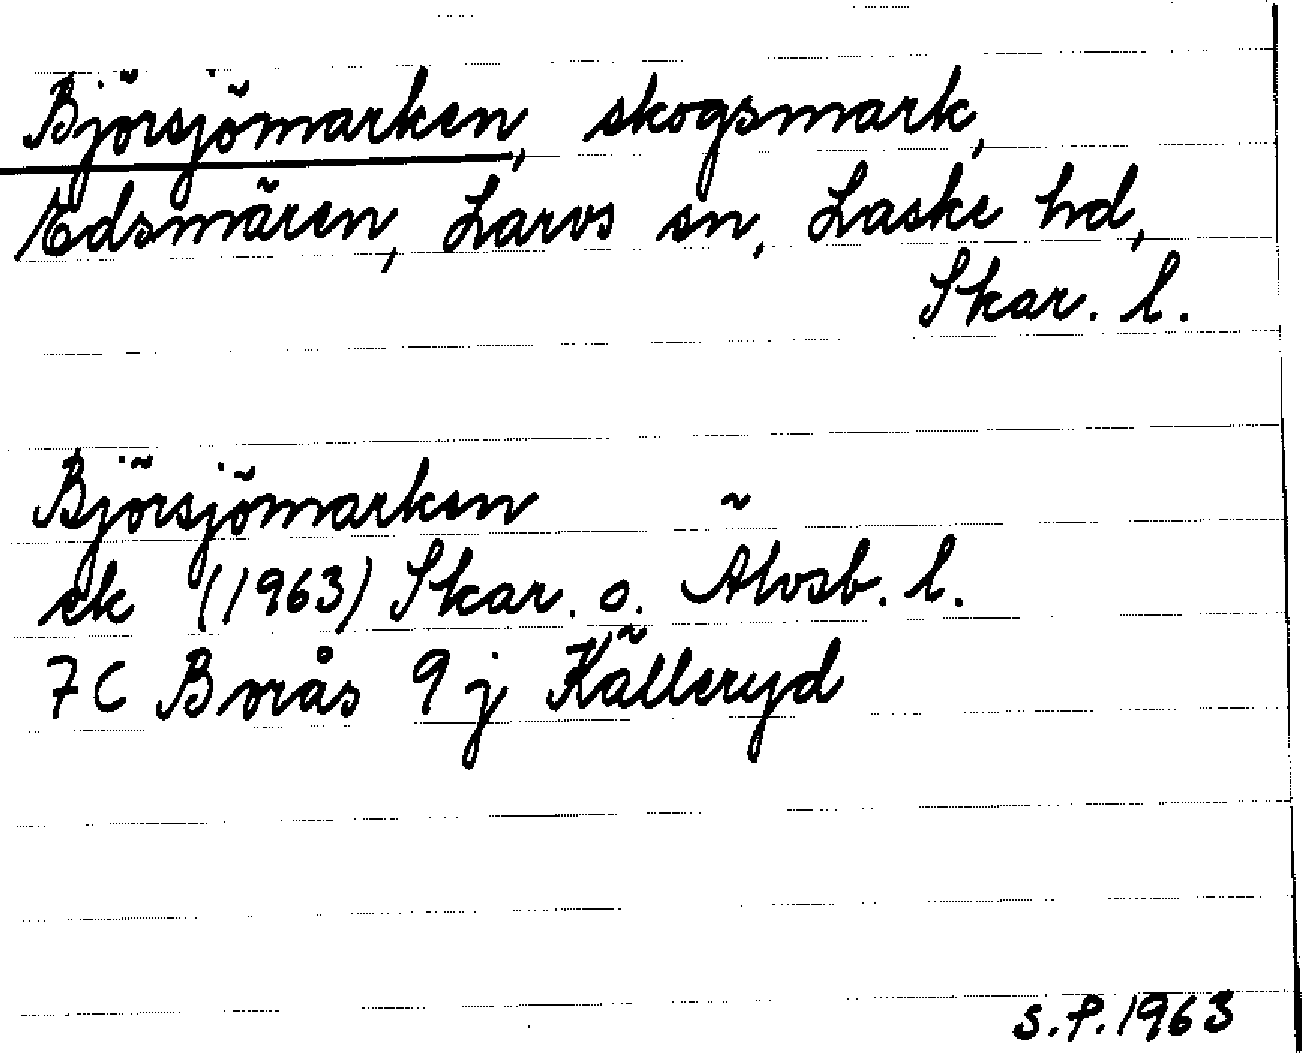 Björsjömarken, skogsmark,
Edsmären, Larvs sn, Laske hd,
Skar. l.
Björsjömarken
ek (1963) Skar. o. Älvsb. l.
7C Borås 9j Källeryd
S.P. 1963